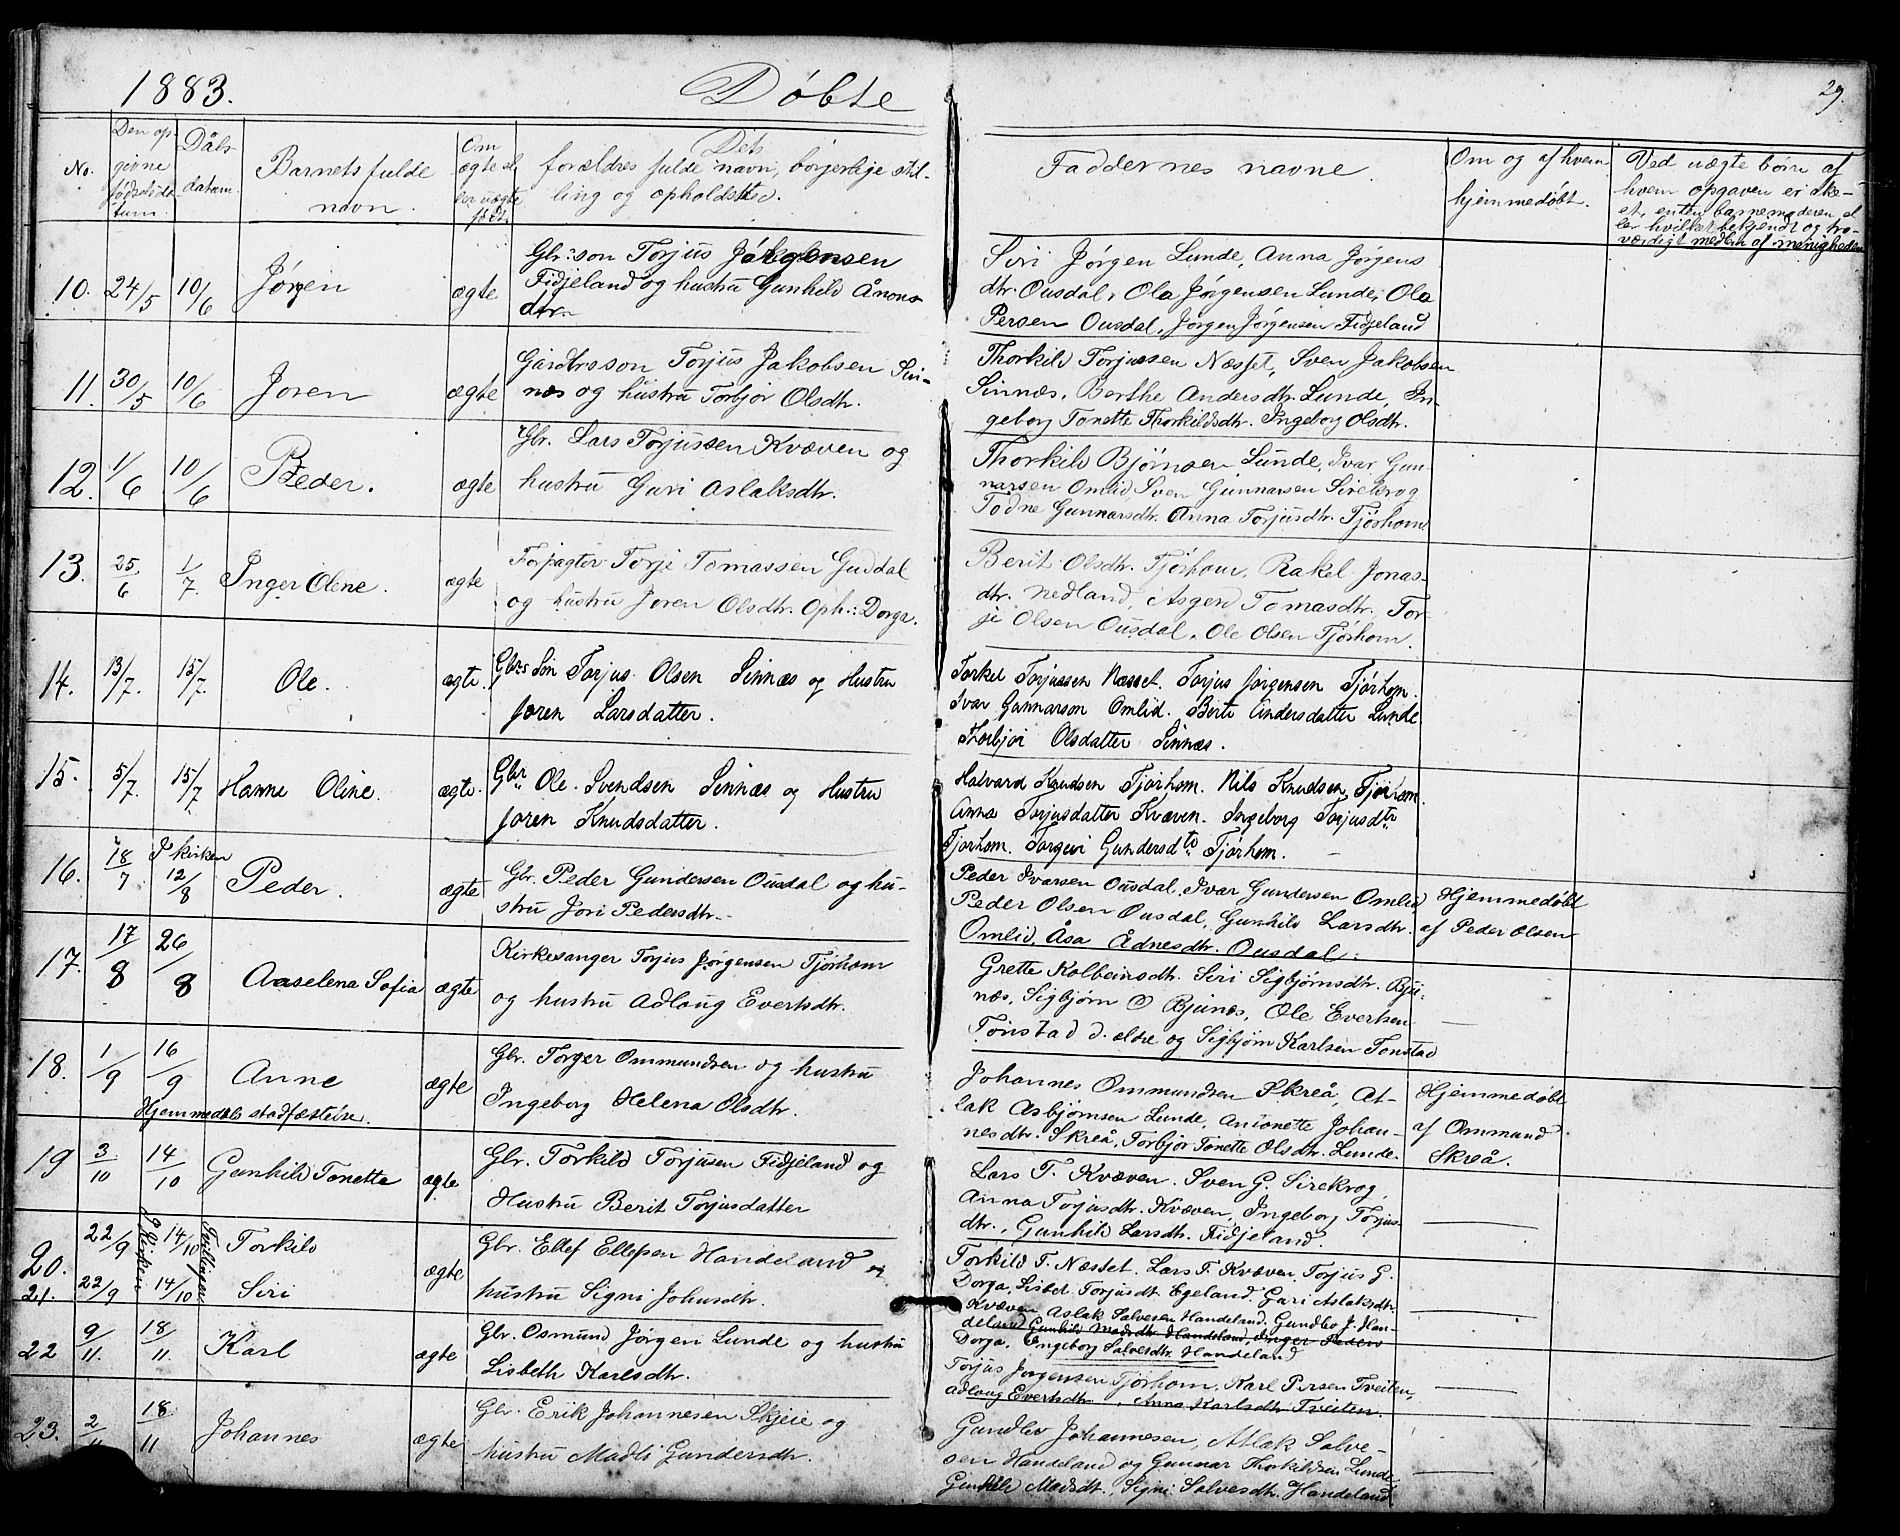 1883.
Døbte
29.
No.
Den op-
givne
fødselsda-
tum.
Dåbs-
datum.
Barnets fulde
navn.
Om
ægte el-
ler uægte
født.
Dets
forældres fulde navn, borgerlige stil-
ling og opholdsted.
Faddernes navne.
Om og af hvem
hjemmedøbt.
Ved uægte børn af
hvem opgaven er ske-
et, enten barnemoderen, el-
ler hvilket bekjendt og tro-
værdigt medlem af menigheden
10. 24/5 10/6 Jörgen ægte
Gbr:son Torjus Jörgensen
Fidjeland og hustru Gunhild Ånons
dtr.
Siri Jörgen Lunde, Anna Jörgens
dtr. Ousdal, Ola Jørgensen Lunde, Ola
Persen Ousdal, Jørgen Jørgensen Fidjeland
11. 30/5 10/6 Joren ægte
Gårdbrsson Torjus Jakobsen Sin-
næs og hustru Torbjör Olsdtr.
Thorkild Torjussen Nesset, Sven Jakobsen
Sinnæs, Berthe Andersdtr. Lunde, In-
geborg Tonette Thorkildsdtr. Ingeborg Olsdtr.
12. 1/6 10/6 Peder. ægte
Gbr. Lars Torjussen Kvæven og
hustru Guri Aslaksdtr.
Thorkild Bjørnsen Lunde, Ivar Gun-
narsen Omlid, Sven Gunnarsen Sirekrog
Todne Gunnarsdtr. Anna Torjusdtr. Tjörhom
13. 25/6 1/7. Inger Oline. ægte
Forpagter Torje Tomassen Guddal
og hustru Joren Olsdtr. Oph.: Dorga.
Berit Olsdtr. Tjörhom, Rakel Jonas-
dtr. Nedland, Asgerd Tomasdtr. Tor-
je Olsen Ousdal, Ole Olsen Tjörhom.
14. 13/7. 15/7. Ole. ægte.
Gbrs Søn Torjus Olsen Sinnæs og Hustru
Joren Larsdatter.
Torkel Torjussen Næsset. Torjus Jörgensen Tjörhom.
Ivar Gunnarson Omlid. Berte Andersdatter Lunde
Thorbjør Olsdatter Sinnæs.
15. 5/7. 15/7 Hanne Oline. ægte.
Gbr Ole Svendsen Sinnæs og Hustru
Joren Knudsdatter.
Halvard Knudsen Tjørhom. Nils Knudsen Tjörhom.
Anna Torjusdatter Kvæven. Ingeborg Torjusdtr
Tjørhom. Torgun Gundersdtr Tjørhom.
16. 18/7 I kirken 12/8 Peder. ægte
Gbr. Peder Gundersen Ousdal og hu-
stru Jori Pedersdtr.
Peder Ivarsen Ousdal, Ivar Gundersen Omlid,
Peder Olsen Ousdal, Gunhild Larsdtr.
Omlid, Åsa Ådnesdtr. Ousdal.
Hjemmedøbt
af Peder Olsen
17. 17/8 26/8 Aaselena Sofia ægte
Kirkesanger Torjus Jørgensen Tjörhom
og hustru Adloug Evertsdtr.
Grette Kolbeinsdtr. Siri Sigbjørnsdtr. Bju-
næs, Sigbjørn O Bjunes, Ole Evertsen
Tonstad d. ældre og Sigbjørn Karlsen Tonstad
18. 1/9 16/9 Anne ægte
Hjemmedåb stadfæstelse.
Gbr. Torger Ommundsen og hustru
Ingeborg Helena Olsdtr.
Johannes Ommundsen Skreå, At-
lak Asbjømsen Lunde, Antonette Johan-
nesdtr. Skreå, Torbjør Tonette Olsdtr. Lunde.
Hjemmedøbt
af Ommund
Skreå.
19 3/10 14/10 Gunhild Tonette ægte
Gbr. Torkild Torjusen Fidjeland og
Hustru Berit Torjusdatter
Lars T. Kvæven. Sven G. Sirekrog,
Anna Torjusdtr. Kvæven, Ingeborg Torjus
dtr., Gunhild Larsdtr. Fidjeland.
20. 22/9 I Kirken 14/10 Tvillinger Torkild ægte
21. 22/9 14/10 Siri
Gbr. Ellef Ellefsen Handeland og
hustru Signi Johnsdtr.
Torkild T. Næsset. Lars T. Kvæven, Torjus G.
Dorga, Lisbet Torjusdt Egeland. Guri Aslaksdtr
Kvæven, Aslak Salvesen Handeland, Gundlev J. Han-
deland Gunhild Madsdtr Handeland, Inger Peders
Dorga. Ingeborg Salvesdtr. Handeland
22 9/11. 18/11. Karl ægte
Gbr. Osmund Jørgen Lunde og hustru
Lisbeth Karlsdtr.
Torjus Jørgensen Tjørhom, Karl Persen Tveiten,
Adloug Evertsdtr, Anna Karlsdtr Tveiten.
23. 2/11 18/11 Johannes ægte
Gbr. Erik Johannesen Skjeie og
hustru Madli Gundersdtr.
Gundlev Johannesen, Atlak Salve-
sen Handeland og Gunnar Thorkildsen Lunde
Gunhild Madsdt., Signi Salvesdtr. Handeland